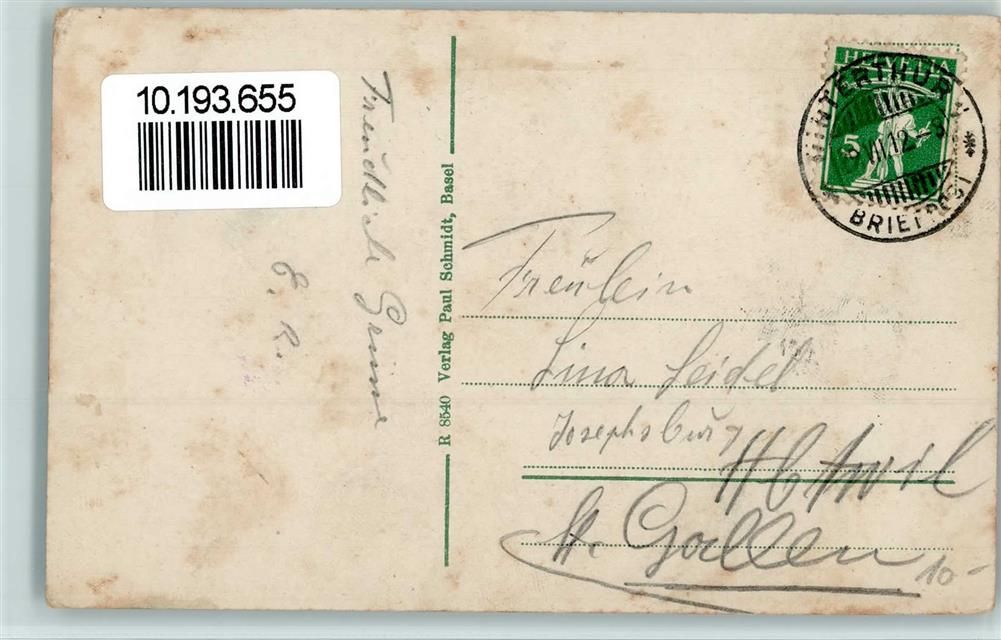 10.193.655
Freudliche Grüsse
E. R.
R 8540 Verlag Paul Schmidt, Basel
HELVETIA
5
WINTERTHUR
III 12
BRIEFPOST
Fräulein
Lina Seidel
Josephsburg
Abtwil
St. Gallen
10-